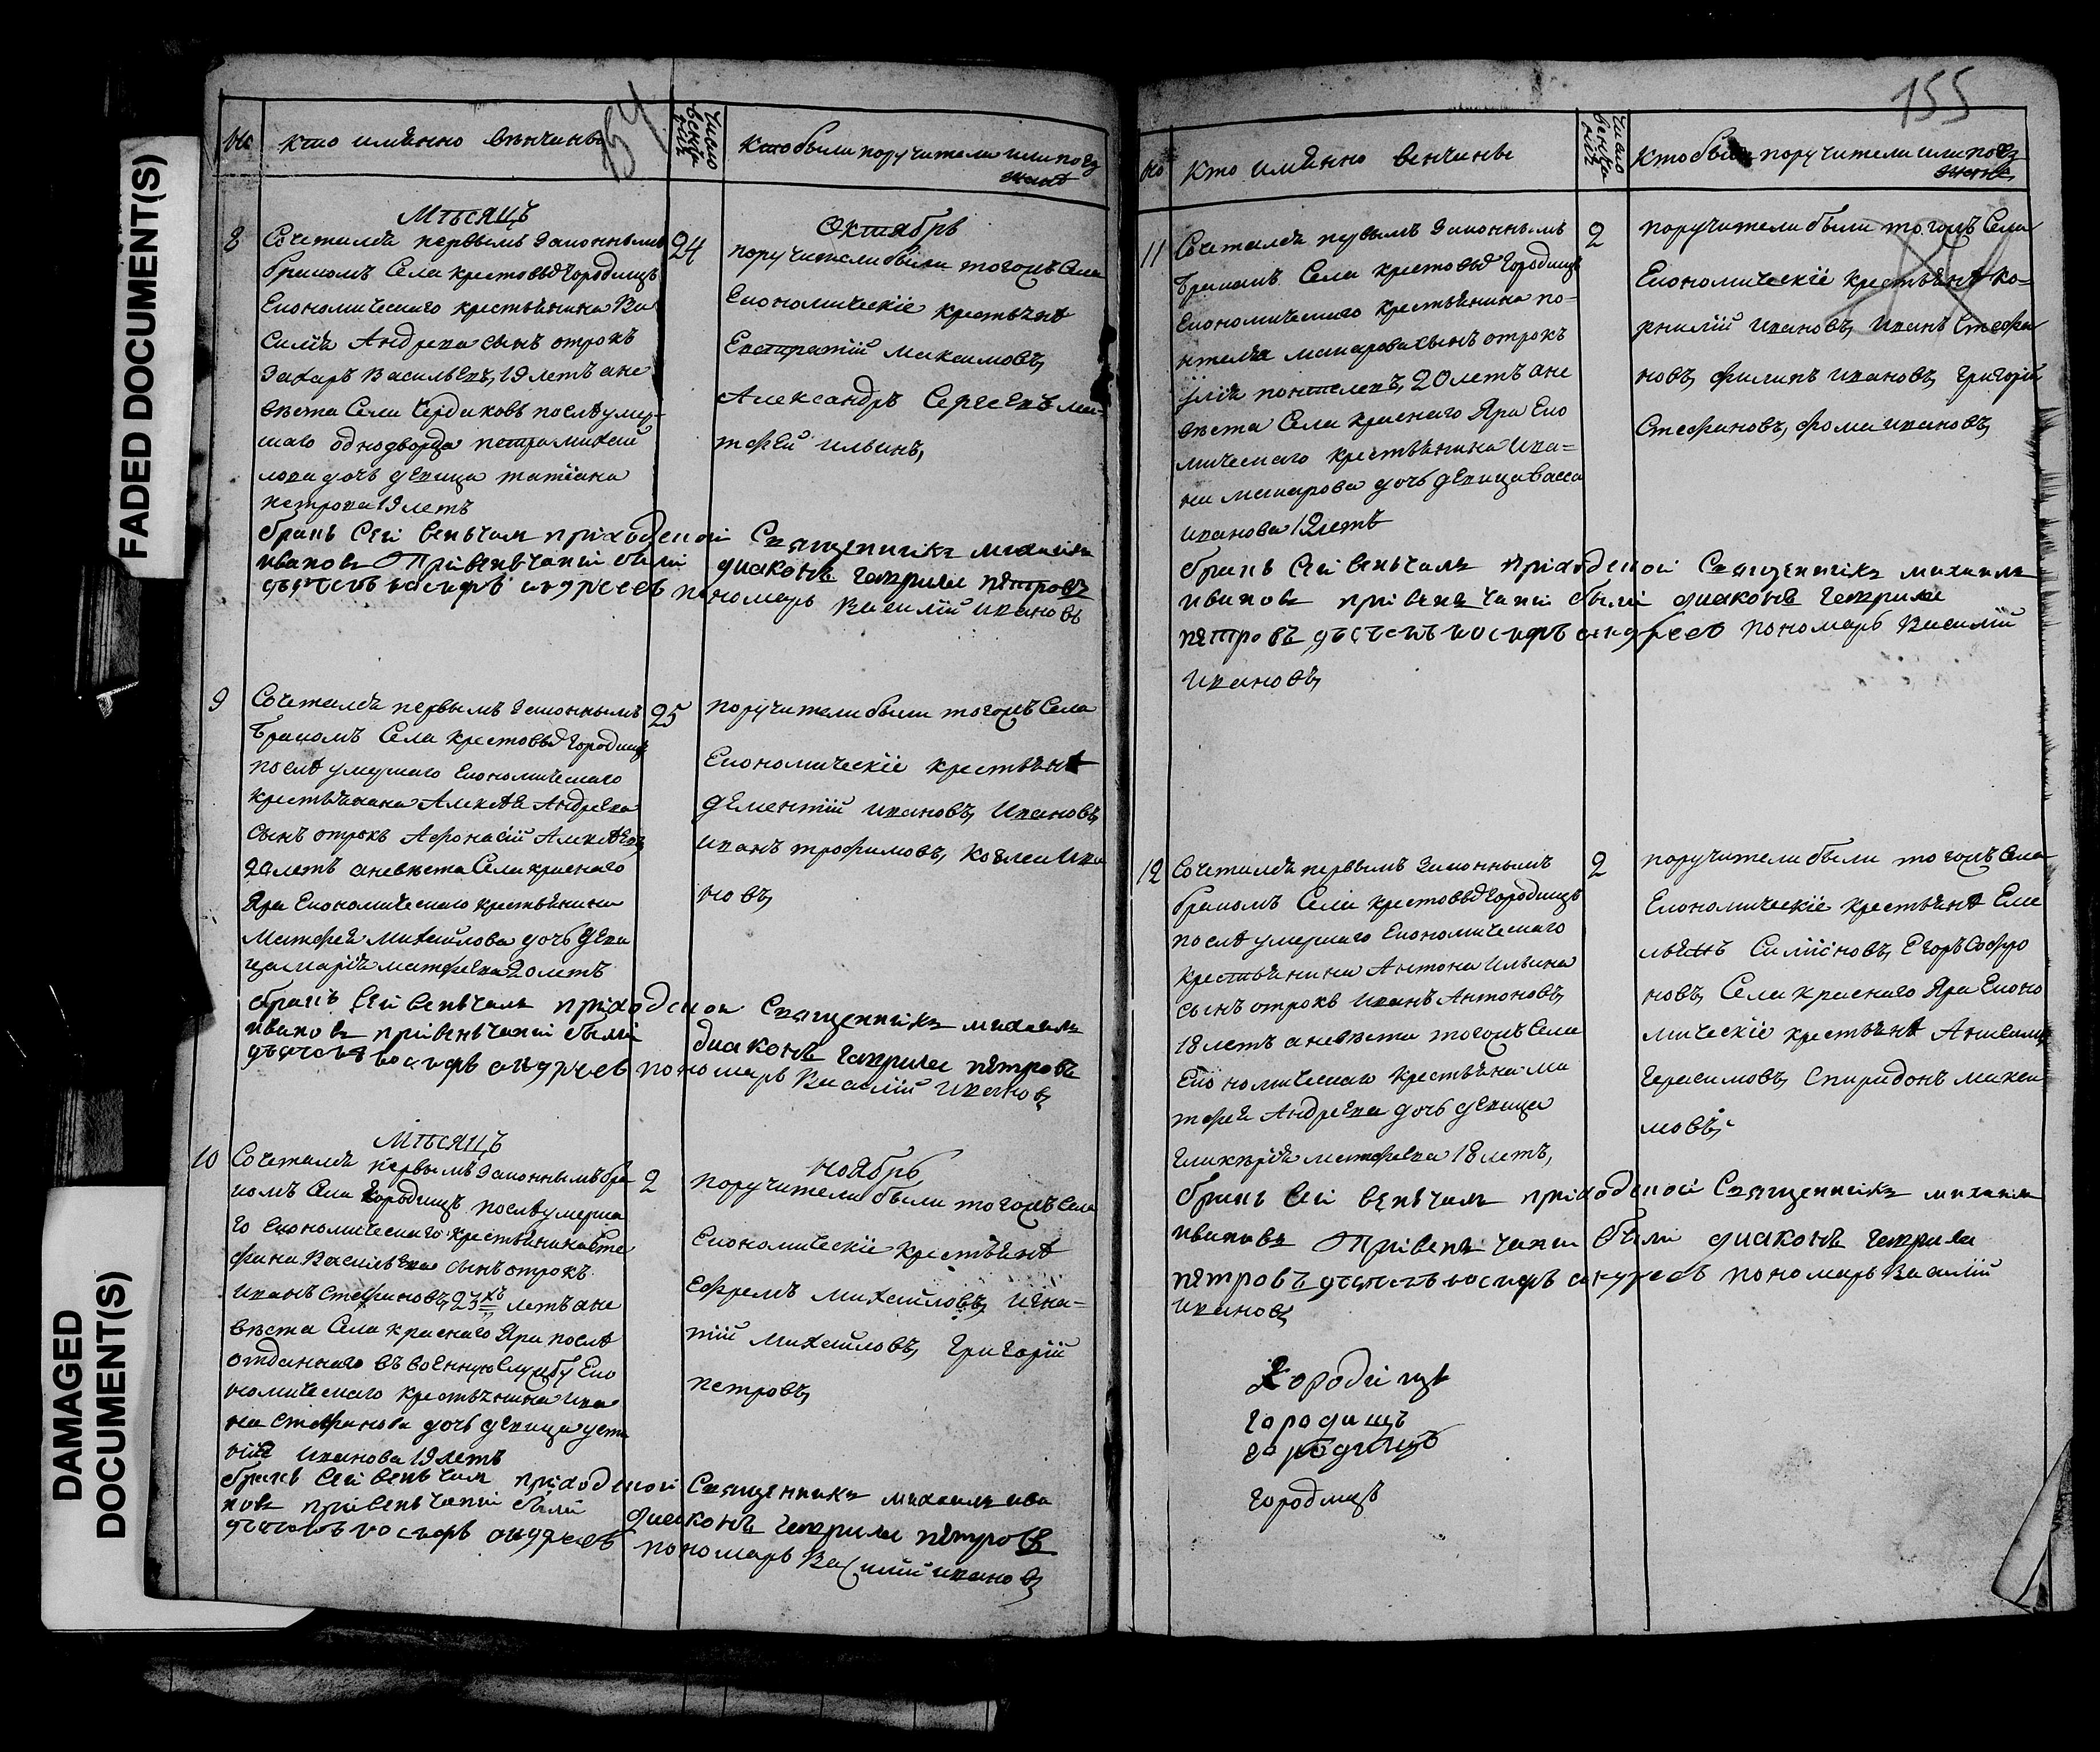 FADED DOCUMENT(S)
DAMAGED
DOCUMENT(S)
354
№
кто имянно венчаны
Число
венча
нія
Кто были поручители или поез
жанѣ
Мѣсяцъ
Октябрь
8
Сочетался первымъ законнымъ
24
бракомъ Села крестовыхъ Городищъ
Економическаго крестьянина Ва
силія Андреева сынъ отрокъ
Захаръ Васильевъ, 19 летъ а не
веста Села Чердаковъ после умер-
шаго однодворца петра михай
лова дочь девица татіана
петрова 19 летъ
поручители были тогожъ Села
Економическіе крестьянѣ
Евстратій Максимовъ,
Александръ Сергеевъ ма-
тфей Ильинъ,
бракъ Сей венчалъ приходской Священникъ михаилъ
ивановъ При венчаніи были диаконъ гаврила петровъ
дьячекъ иосифъ андреевъ пономарь Василій ивановъ
9
Сочетался первымъ законнымъ
25
Бракомъ Села крестовыхъ Городищъ
после умершаго Економическаго
крестьянина Алексѣя Андреева
сынъ отрокъ Афонасій Алексѣевъ
20 летъ а невеста Села краснаго
Яра Економическаго крестьянина
Матфея Михайлова дочь деви
ца марія матфеева 20 летъ
поручители были тогожъ Села
Економическіе крестьянѣ
дементій ивановъ, Ивановъ,
иванъ трофимовъ, Ива
новъ,
бракъ Сей венчалъ приходской Священникъ михаилъ
ивановъ при венчаніи были диаконъ гаврила петровъ
дьячекъ иосифъ андреевъ пономарь Василій ивановъ
Мѣсяцъ
Ноябрь
10
Сочетался первымъ законнымъ бра
2
комъ Села Городищъ после умерша
го Економическаго крестьянина Сте
фана Васильева сынъ отрокъ
иванъ Стефановъ, 23хъ летъ а не
веста Села краснаго Яра после
отданнаго въ военную Службу Еко
номическаго крестьянина Ива
на Стефанова дочь девица усти
нія иванова 19 летъ
поручители были тогожъ Села
Економическіе крестьянѣ
Ефремъ Михайловъ, Игна-
тій Михайловъ, Григорій
петровъ,
бракъ Сей венчалъ приходской Священникъ михаилъ ива
новъ при венчаніи были диаконъ гаврила петровъ
дьячекъ иосифъ андреевъ пономарь Василій ивановъ
155
№
Кто имянно венчаны
Число
венча
нія
Кто были поручители или поез
жанѣ
11
Сочетался первымъ законнымъ
2
Бракомъ Села крестовыхъ Городищъ
Економическаго крестьянина по-
нтелея макарова сынъ отрокъ
понтелевъ, 20 летъ а не
веста Села краснаго Яра Еко
номическаго крестьянина Ива-
на макарова дочь девица васса
иванова летъ
поручители были тогожъ Села
Економическіе крестьянѣ ко-
рнилій ивановъ, иванъ Стефа
новъ, филипъ ивановъ, григорій
Стефановъ, фома ивановъ,
бракъ Сей венчалъ приходской Священникъ михаилъ
ивановъ при венчаніи были диаконъ гаврила
петровъ дьячекъ иосифъ андреевъ пономарь Василій
ивановъ,
12
Сочетался первымъ законнымъ
2
бракомъ Села крестовыхъ Городищъ
после умершаго Економическаго
крестьянина Антона Ильина
сынъ отрокъ иванъ Антоновъ,
18 летъ а невеста тогожъ Села
Економическаго крестьянина ма
тфея Андреева дочь девица
гликерія матфеева 18 летъ,
поручители были тогожъ Села
Економическіе крестьянѣ Еме
льянъ Егоръ Софро
новъ, Села краснаго Яра Еконо
мическіе крестьянѣ Анисимъ
герасимовъ, Спиридонъ макси
мовъ,
бракъ Сей венчалъ приходской Священникъ михаилъ
ивановъ При венчаніи были диаконъ гаврила
петровъ дьячекъ иосифъ андреевъ пономарь Василій
ивановъ
Городищъ
городищъ
городищъ
городищъ